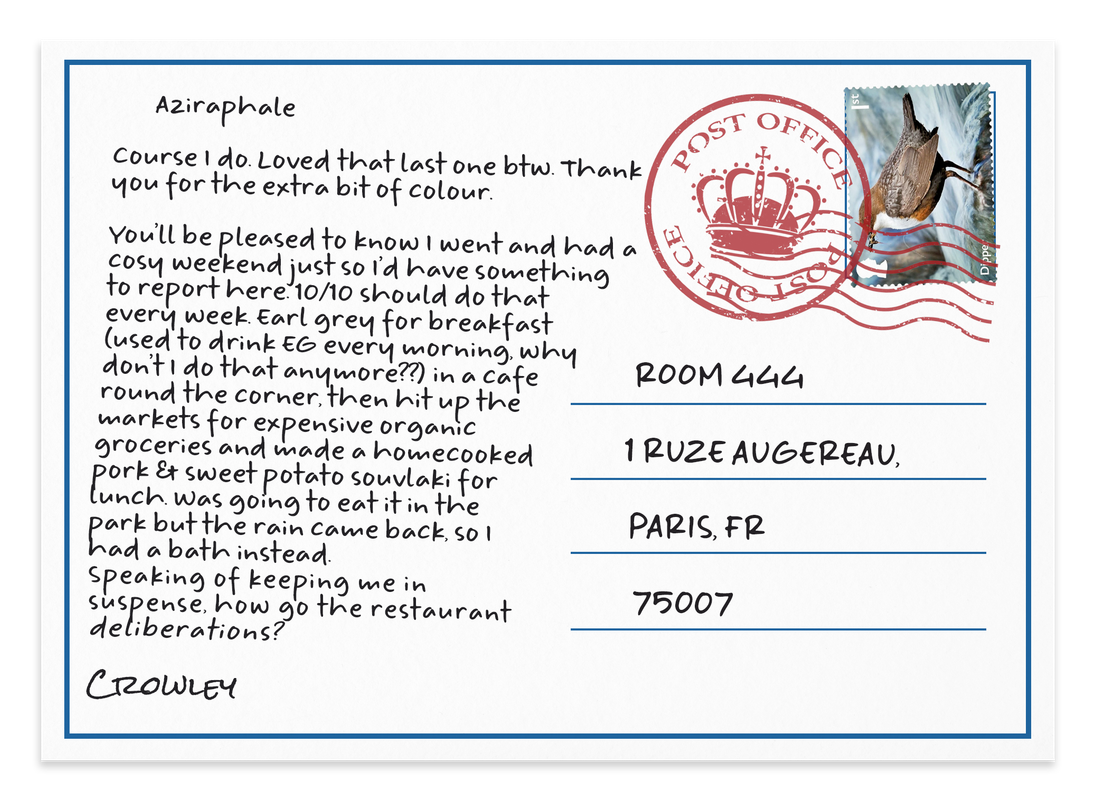 Aziraphale
Course I do. Loved that last one btw. Thank
you for the extra bit of colour.
You'll be pleased to know I went and had a
cosy weekend just so I'd have something
to report here. 10/10 should do that
every week. Earl grey for breakfast
(used to drink EG every morning, why
don't I do that anymore??) in a cafe
round the corner, then hit up the
markets for expensive organic
groceries and made a homecooked
pork & sweet potato souvlaki for
lunch. Was going to eat it in the
park but the rain came back, so I
had a bath instead.
Speaking of keeping me in
suspense, how go the restaurant
deliberations?
CROWLEY
POST OFFICE
POST OFFICE
1st
Dippe
ROOM 444
1 RUZE AUGEREAU,
PARIS, FR
75007